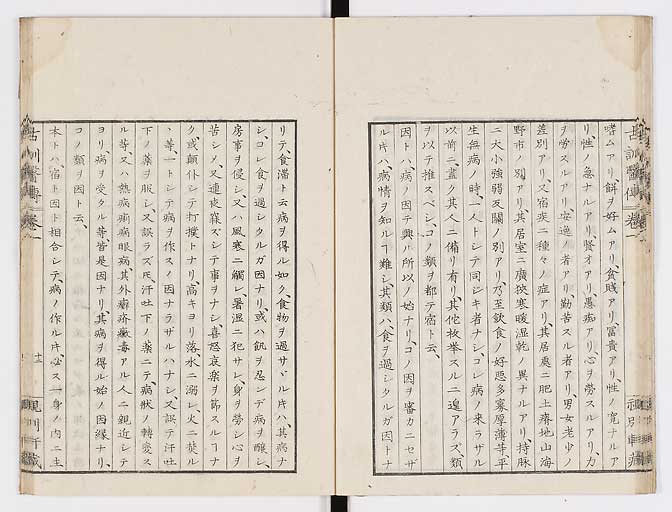 嗜ムアリ餅ヲ好ムアリ、貧賤アリ、冨貴アリ性ノ寛ナルア
リ、性ノ急ナルアリ、賢才アリ、愚痴アリ、心ヲ勞スルアリ、力
ヲ勞スルアリ、安逸ノ者アリ勤苦スル者アリ、男女老少ノ
差別アリ、又宿疾ニ種々ノ症アリ、其居處ニ肥土瘠地山海
野市ノ別アリ、其居室ニ廣狹寒暖湿乾ノ異ナルアリ、持脉
ニ大小強弱及闊ノ別アリ乃至飲食ノ好惡多寡厚薄等、平
生無病ノ時、一人トシテ同シキ者ナシ、コレ病ノ来ラザル
以前ニ、盡ク其人ニ備リ有リ、其佗枚挙スルニ遑アラズ、類
ヲ以テ推スベシ、コノ類ヲ都テ宿ト云、
因トハ、病ノ因テ興ル所以ノ始ナリ、コノ因ヲ審カニセザ
ル片ハ、病情ヲ知ルヿ難シ、其類ハ、食ヲ過シタルガ因トナ
リテ、食滞ト云病ヲ得ル如ク、食物ヲ過サヾル片ハ其病ナ
シ、コレ食ヲ過シタルガ因ナリ、或ハ飢ヲ忍ンデ病ヲ醸シ、
房事ヲ侵シ、又ハ風寒ニ觸レ、暑湿ニ犯サレ、身ヲ勞シ心ヲ
苦シメ、又連夜寐ズシテ事ヲナシ喜怒哀楽ヲ節スルヿナ
ク、或顛仆シテ打撲トナリ、高キヨリ落、水ニ溺レ、火ニ焚ル
ヽ等、一トシテ病ヲ作スノ因ナラザルハナシ、又誤テ汗吐
下ノ薬ヲ服シ、又誤ラズ𪜈汗吐下ノ薬ニテ、病狀ノ轉変ス
ル等、又ハ熱病痢病眼病、其外癬疥黴毒アル人ニ親近シテ
ヨリ、病ヲ受タル等皆是因ナリ、其病ヲ得ル始ノ因縁ナリ、
コノ類ヲ因ト云、
本トハ、宿ト因ト相合シテ、病ノ作ル片必ス一身ノ内ニ主
古訓醫傳 卷一